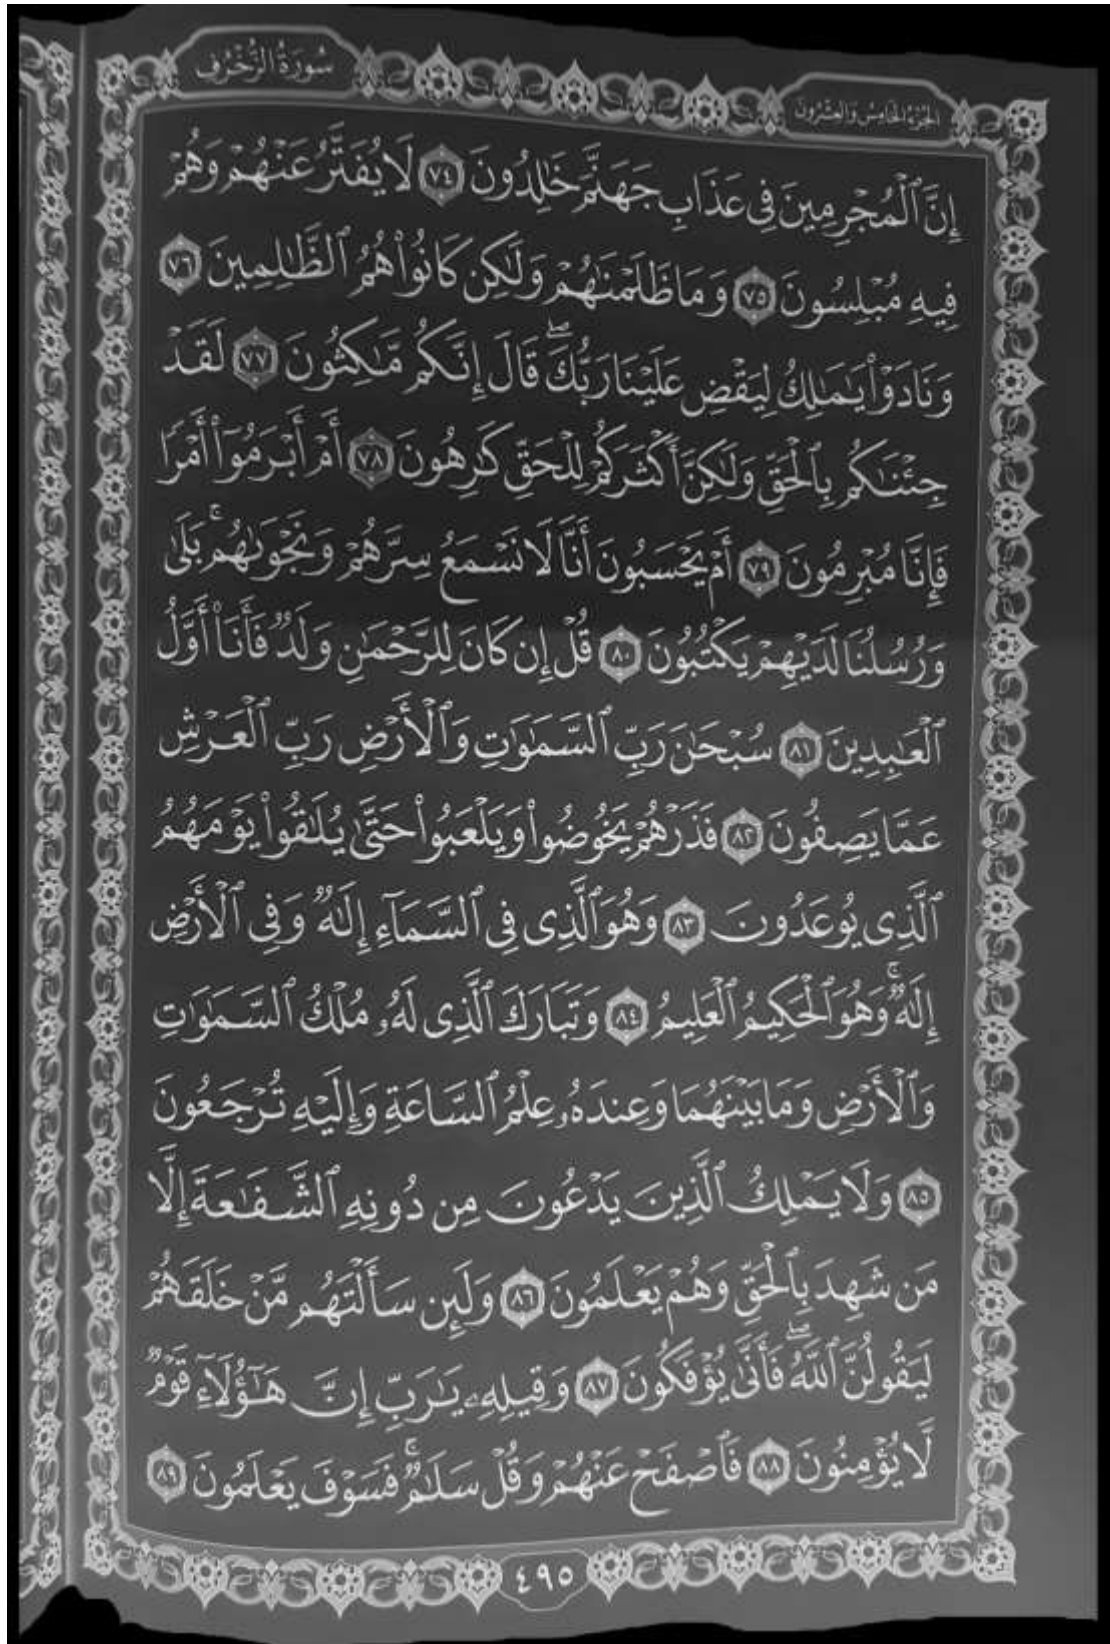 الجزء الخامس والعشرون
سورة الزخرف
إِنَّ ٱلْمُجْرِمِينَ فِى عَذَابِ جَهَنَّمَ خَٰلِدُونَ ٧٤ لَا يُفَتَّرُ عَنْهُمْ وَهُمْ
فِيهِ مُبْلِسُونَ ٧٥ وَمَا ظَلَمْنَٰهُمْ وَلَٰكِن كَانُوا۟ هُمُ ٱلظَّٰلِمِينَ ٧٦
وَنَادَوْا۟ يَٰمَٰلِكُ لِيَقْضِ عَلَيْنَا رَبُّكَ ۖ قَالَ إِنَّكُم مَّٰكِثُونَ ٧٧ لَقَدْ
جِئْنَٰكُم بِٱلْحَقِّ وَلَٰكِنَّ أَكْثَرَكُمْ لِلْحَقِّ كَٰرِهُونَ ٧٨ أَمْ أَبْرَمُوٓا۟ أَمْرًا
فَإِنَّا مُبْرِمُونَ ٧٩ أَمْ يَحْسَبُونَ أَنَّا لَا نَسْمَعُ سِرَّهُمْ وَنَجْوَىٰهُم ۚ بَلَىٰ
وَرُسُلُنَا لَدَيْهِمْ يَكْتُبُونَ ٨٠ قُلْ إِن كَانَ لِلرَّحْمَٰنِ وَلَدٌ فَأَنَا۠ أَوَّلُ
ٱلْعَٰبِدِينَ ٨١ سُبْحَٰنَ رَبِّ ٱلسَّمَٰوَٰتِ وَٱلْأَرْضِ رَبِّ ٱلْعَرْشِ
عَمَّا يَصِفُونَ ٨٢ فَذَرْهُمْ يَخُوضُوا۟ وَيَلْعَبُوا۟ حَتَّىٰ يُلَٰقُوا۟ يَوْمَهُمُ
ٱلَّذِى يُوعَدُونَ ٨٣ وَهُوَ ٱلَّذِى فِى ٱلسَّمَآءِ إِلَٰهٌ وَفِى ٱلْأَرْضِ
إِلَٰهٌ ۚ وَهُوَ ٱلْحَكِيمُ ٱلْعَلِيمُ ٨٤ وَتَبَارَكَ ٱلَّذِى لَهُۥ مُلْكُ ٱلسَّمَٰوَٰتِ
وَٱلْأَرْضِ وَمَا بَيْنَهُمَا وَعِندَهُۥ عِلْمُ ٱلسَّاعَةِ وَإِلَيْهِ تُرْجَعُونَ
٨٥ وَلَا يَمْلِكُ ٱلَّذِينَ يَدْعُونَ مِن دُونِهِ ٱلشَّفَٰعَةَ إِلَّا
مَن شَهِدَ بِٱلْحَقِّ وَهُمْ يَعْلَمُونَ ٨٦ وَلَئِن سَأَلْتَهُم مَّنْ خَلَقَهُمْ
لَيَقُولُنَّ ٱللَّهُ ۖ فَأَنَّىٰ يُؤْفَكُونَ ٨٧ وَقِيلِهِۦ يَٰرَبِّ إِنَّ هَٰٓؤُلَآءِ قَوْمٌ
لَّا يُؤْمِنُونَ ٨٨ فَٱصْفَحْ عَنْهُمْ وَقُلْ سَلَٰمٌ ۚ فَسَوْفَ يَعْلَمُونَ ٨٩
٤٩٥